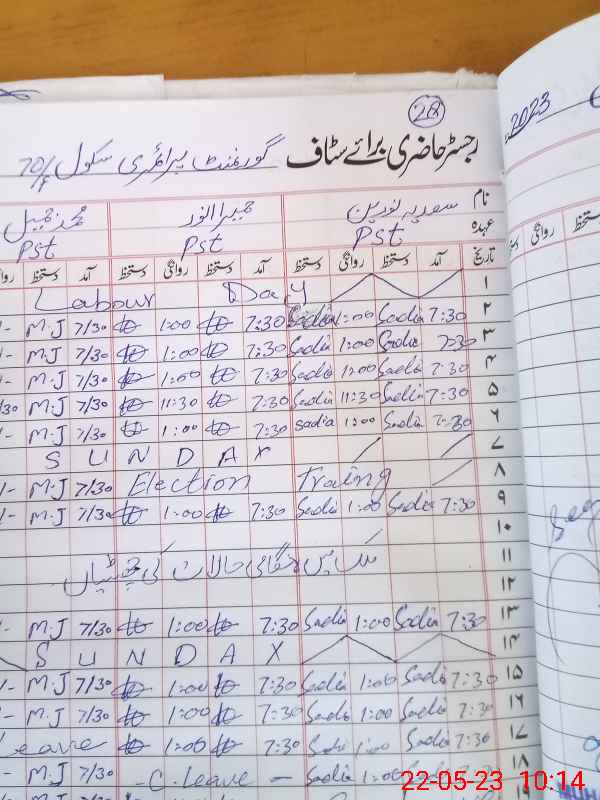 28
2023
رجسٹر حاضری برائے سٹاف گورنمنٹ پرائمری سکول 70/F
نام سعدیہ نورین حمیرا انور محمد جمیل
عہدہ Pst Pst Pst
تاریخ آمد دستخط روانگی دستخط آمد دستخط روانگی دستخط آمد دستخط روانگی دستخط
۱ Labour Day
۲ 7:30 Sadia 1:00 Sadia 7:30 1:00 7/30 M.J
۳ 7:30 Sadia 1:00 Sadia 7:30 1:00 7/30 M.J
۴ 7:30 Sadia 1:00 Sadia 7:30 1:00 7/30 M.J
۵ 7:30 Sadia 11:30 Sadia 7:30 11:30 7/30 M.J
۶ 7:30 Sadia 1:00 Sadia 7:30 1:00 7/30 M.J
۷ SUNDAY
۸ Election Traing 7/30 M.J
۹ 7:30 Sadia 1:00 Sadia 7:30 1:00 7/30 M.J
۱۰
۱۱ ملک میں ہنگامی حالات کی چھٹیاں
۱۲
۱۳ 7:30 Sadia 1:00 Sadia 7:30 1:00 7/30 M.J
۱۴ SUNDAY
۱۵ 7:30 Sadia 1:00 Sadia 7:30 1:00 7/30 M.J
۱۶ 7:30 Sadia 1:00 Sadia 7:30 1:00 7/30 M.J
۱۷ 7:30 Sadia 1:00 Sadia 7:30 1:00 Leave
۱۸ Sadia 1:00 - C.Leave - 7/30 M.J
22-05-23 10:14